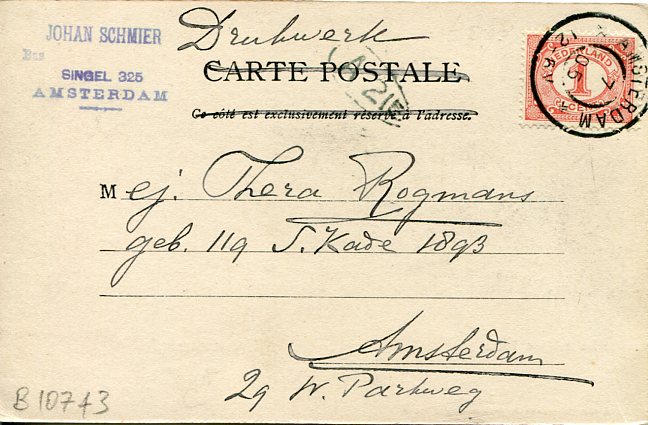 JOHAN SCHMIER
Bas
SINGEL 325
AMSTERDAM
Drukwerk
CARTE POSTALE
Ce côté est exclusivement réservé à l'adresse.
NEDERLAND
1
AMSTERDAM
Mej. Thera Rogmans
geb. 119 S. Kade 1893
Amsterdam
29 W. Parkweg
B10743